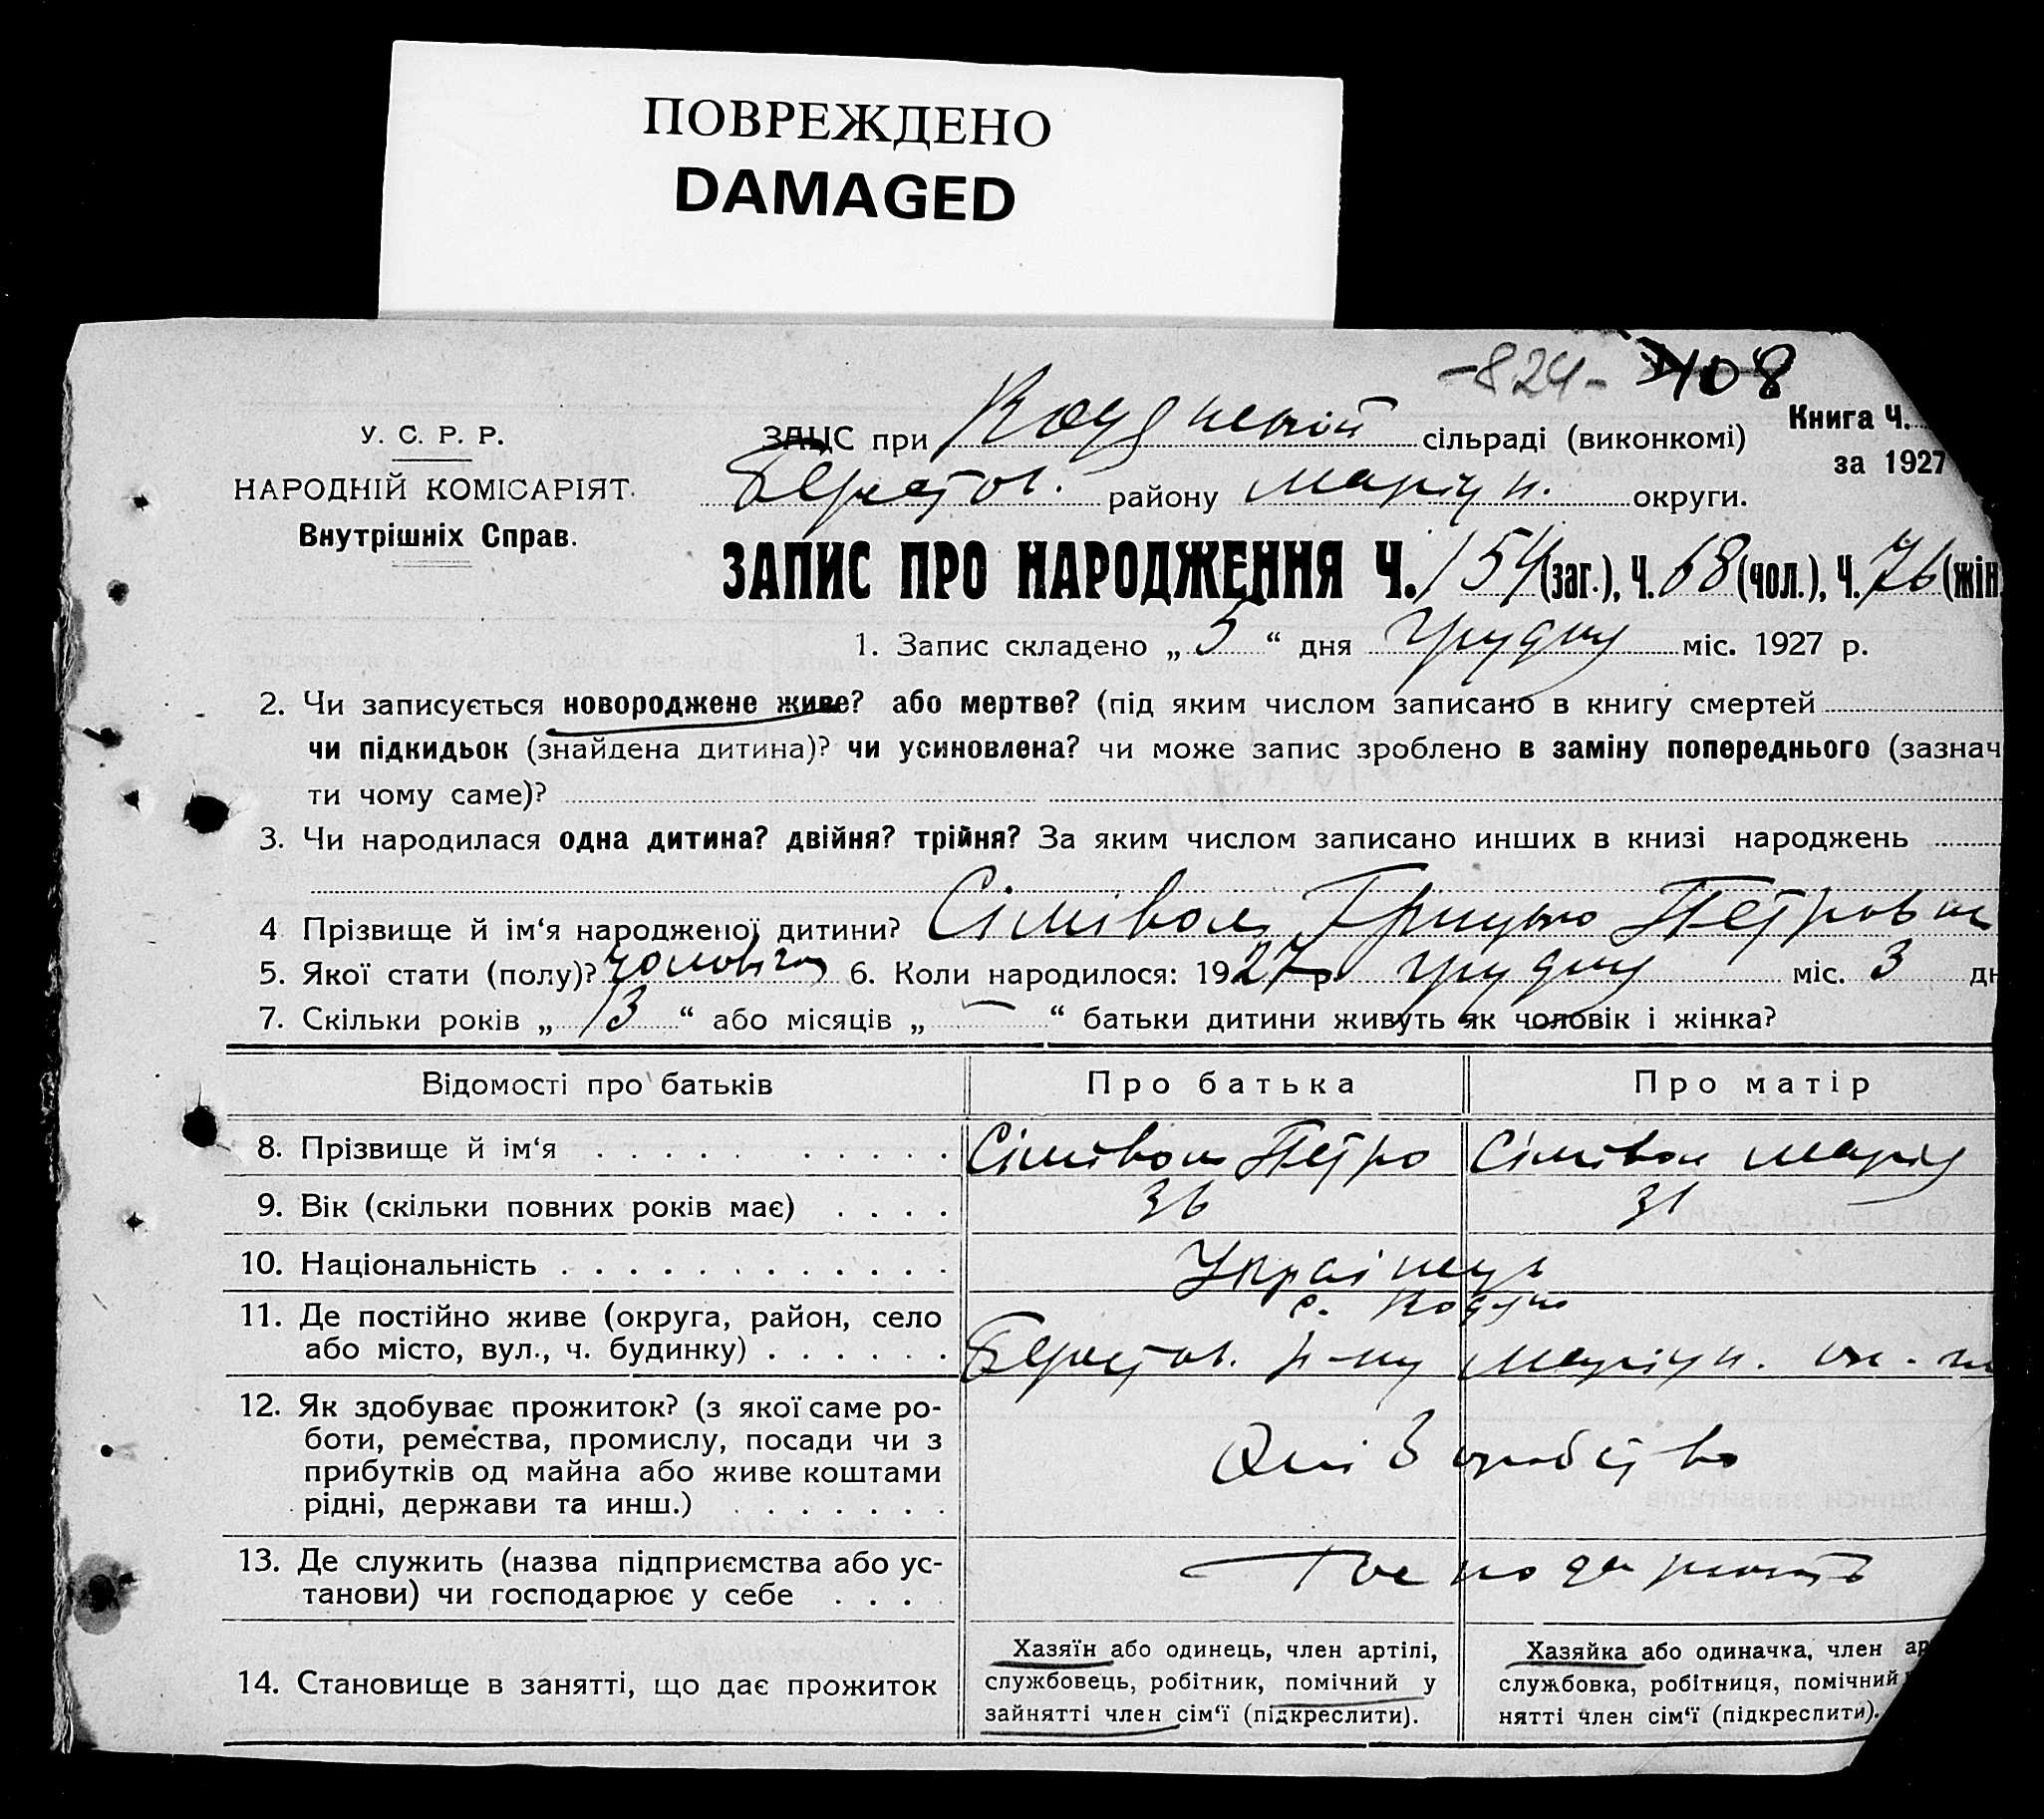 ПОВРЕЖДЕНО
DAMAGED
-824- 408
У. С. Р. Р.
НАРОДНІЙ КОМІСАРІЯТ.
Внутрішніх Справ.
ЗАЦС при сільраді (виконкомі)
Книга Ч.
за 1927
Берестов. району Маріуп. округи.
ЗАПИС ПРО НАРОДЖЕННЯ Ч. 154 (заг.), Ч. 68 (чол.), Ч. 76 (жін.
1. Запис складено „ 5 “ дня грудня міс. 1927 р.
2. Чи записується новороджене живе? або мертве? (під яким числом записано в книгу смертей
чи підкидьок (знайдена дитина)? чи усиновлена? чи може запис зроблено в заміну попереднього (зазнач
ти чому саме)?
3. Чи народилася одна дитина? двійня? трійня? За яким числом записано инших в книзі народжень
4 Прізвище й ім‘я народженої дитини? Сімівол Грицько Петров
5. Якої стати (полу)? чоловіча 6. Коли народилося: 1927 р. грудня міс. 3 дн
7. Скільки років „ 13 “ або місяців „ — “ батьки дитини живуть як чоловік і жінка?
Відомості про батьків Про батька Про матір
8. Прізвище й ім‘я Сімівол Петро Сімівол Марія
9. Вік (скільки повних років має) 36 31
10. Національність Українець
11. Де постійно живе (округа, район, село
або місто, вул., ч. будинку)
Берестов. р-ну Маріуп.
12. Як здобуває прожиток? (з якої саме ро-
боти, ремества, промислу, посади чи з
прибутків од майна або живе коштами
рідні, держави та инш.)
13. Де служить (назва підприємства або ус-
танови) чи господарює у себе
Господарюють
14. Становище в занятті, що дає прожиток
Хазяїн або одинець, член артілі,
службовець, робітник, помічний у
зайнятті член сім‘ї (підкреслити).
Хазяйка або одиначка, член ар
службовка, робітниця, помічний
нятті член сім‘ї (підкреслити).